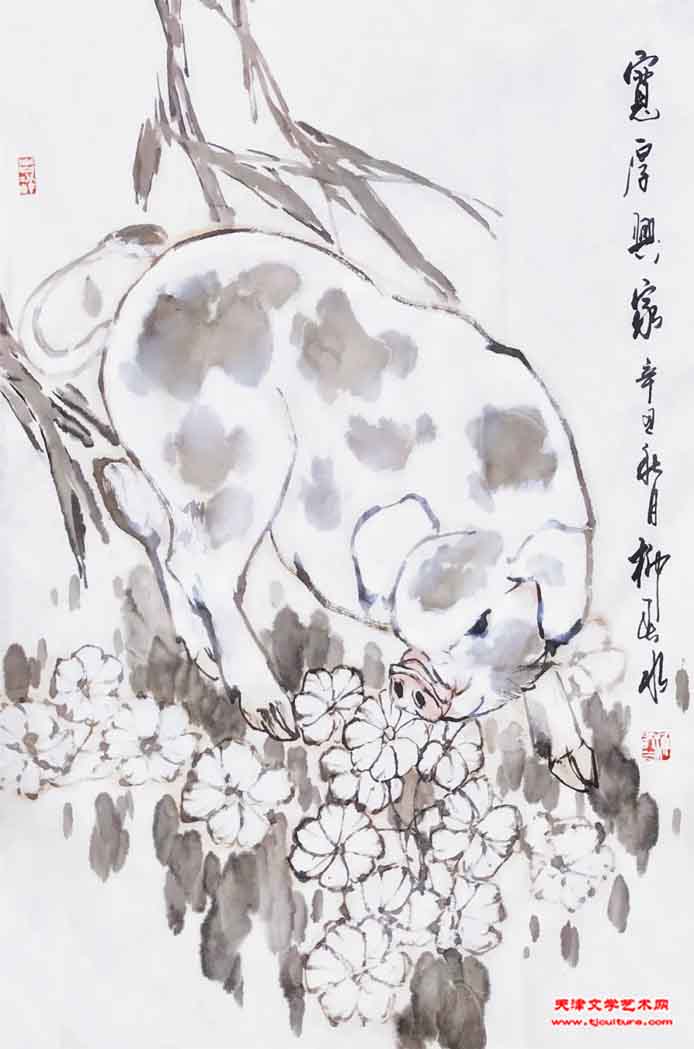 寬厚興家 辛丑秋月 柳春水
天津文学艺术网
www.tjculture.com